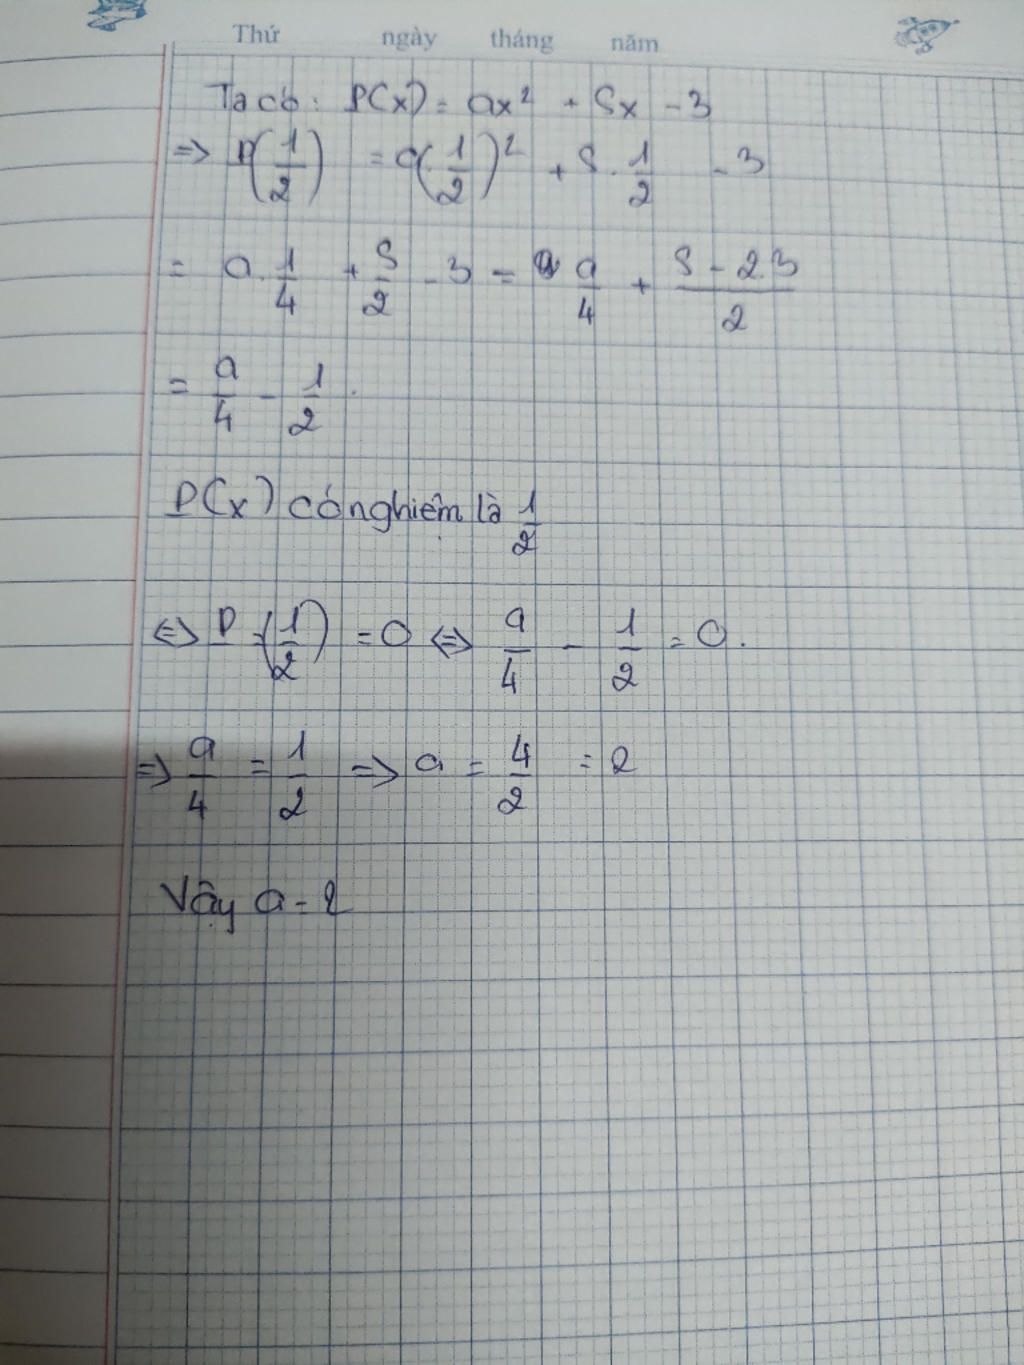 Thứ ngày tháng năm
Ta có: P(x) = ax² + 5x - 3
=> P(1/2) = a(1/2)² + 5.1/2 - 3
= a.1/4 + 5/2 - 3 = a/4 + (5 - 23)/2
= a/4 - 1/2.
P(x) có nghiệm là 1/2
<=> P(1/2) = 0 <=> a/4 - 1/2 = 0.
=> a/4 = 1/2 => a = 4/2 = 2
Vậy a = 2